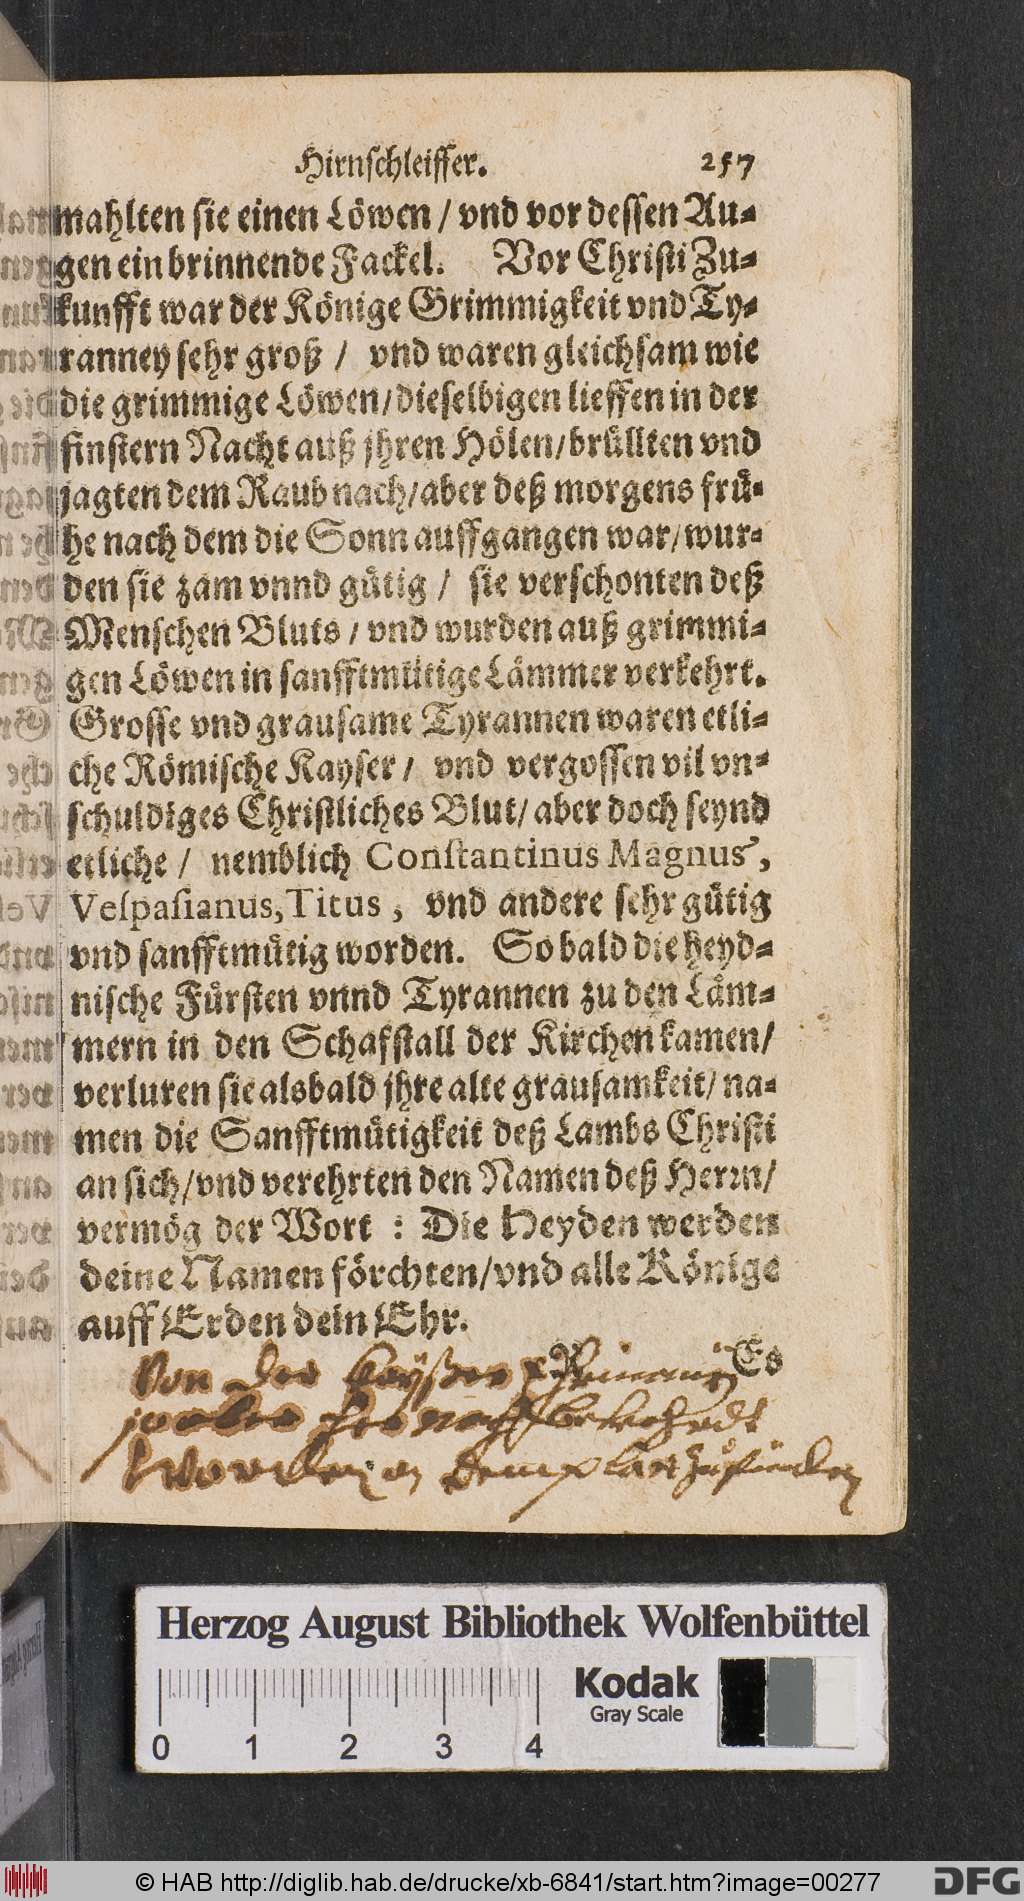 Hirnschleiffer. 257
mahlten sie einen Löwen / vnd vor dessen Au-
gen ein brinnende Fackel. Vor Christi Zu-
kunfft war der Könige Grimmigkeit vnd Ty-
ranney sehr groß / vnd waren gleichsam wie
die grimmige Löwen / dieselbigen lieffen in der
finstern Nacht auß jhren Hölen / brüllten vnd
jagten dem Raub nach / aber deß morgens frü-
he nach dem die Sonn auffgangen war / wur-
den sie zam vnnd gütig / sie verschonten deß
Menschen Bluts / vnd wurden auß grimmi-
gen Löwen in sanfftmütige Lämmer verkehrt.
Grosse vnd grausame Tyrannen waren etli-
che Römische Kayser / vnd vergossen vil vn-
schuldiges Christliches Blut / aber doch seynd
etliche / nemblich Constantinus Magnus,
Vespasianus, Titus, vnd andere sehr gütig
vnd sanfftmütig worden. So bald die Heyd-
nische Fürsten vnnd Tyrannen zu den Läm-
mern in den Schafstall der Kirchen kamen /
verluren sie alsbald jhre alte grausamkeit / na-
men die Sanfftmütigkeit deß Lambs Christi
an sich / vnd verehrten den Namen deß Herrn /
vermög der Wort : Die Heyden werden
deine Namen förchten / vnd alle Könige
auff Erden dein Ehr.
R Es
Von der
Worden zu finden
Herzog August Bibliothek Wolfenbüttel
Kodak
Gray Scale
0 1 2 3 4
© HAB http://diglib.hab.de/drucke/xb-6841/start.htm?image=00277
DFG